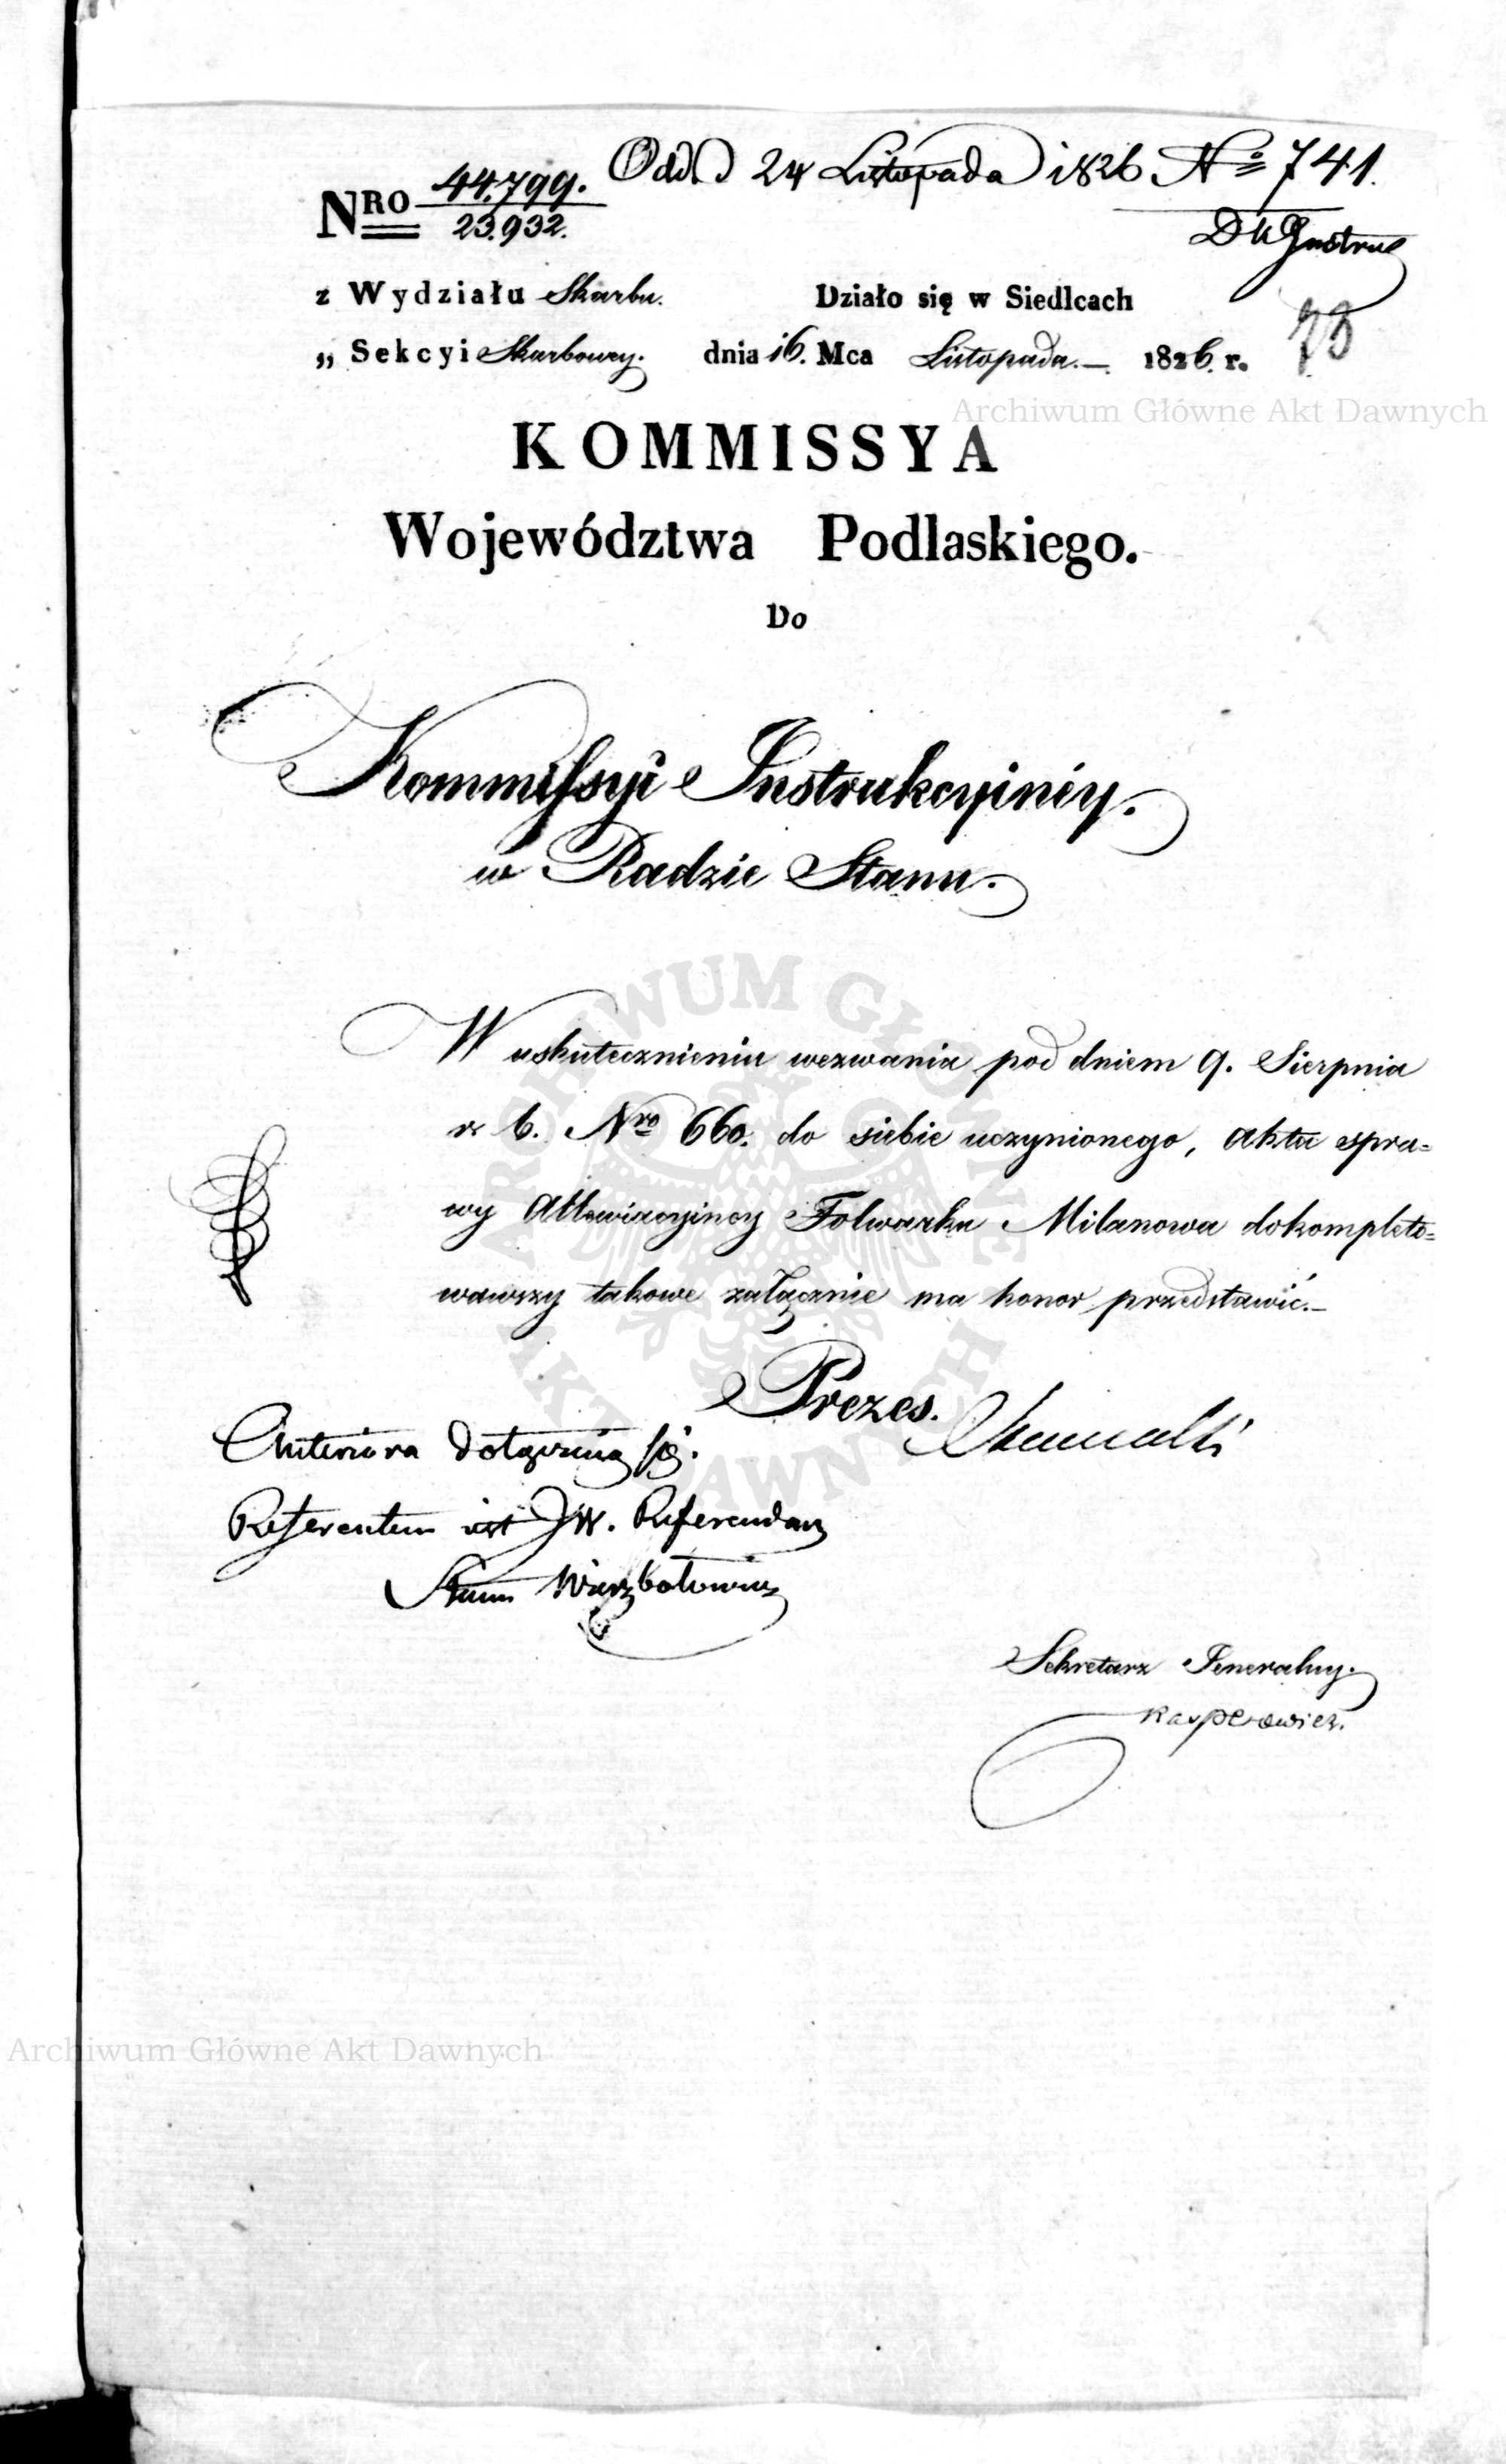 Odd. D 24 Listopada 1826 No 741.
Dł Instruc
NRO 44.799.
23.932.
z Wydziału Skarbu.
Działo się w Siedlcach
„ Sekcyi Skarbowey. dnia 16. Mca Listopada.—. 1826. r.
Archiwum Główne Akt Dawnych
KOMMISSYA
Województwa Podlaskiego.
Do
Kommissyi Instrukcyiniéy.
w Radzie Stanu.
W uskutecznieniu wezwania pod dniem 9. Sierpnia
r. b. Nro 660. do siebie uczynionego, akta spra=
wy Allewiacyiney Folwarku Milanowa dokompleto=
wawszy takowe załącznie ma honor przedstawić.—
Prezes.
Anteriora dołączaią się.
Referentem iest JW. Referendarz
Stanu Wierzbołowicz
Sekretarz Jeneralny.
Kasperowicz.
ARCHIWUM GŁÓWNE AKT DAWNYCH
Archiwum Główne Akt Dawnych